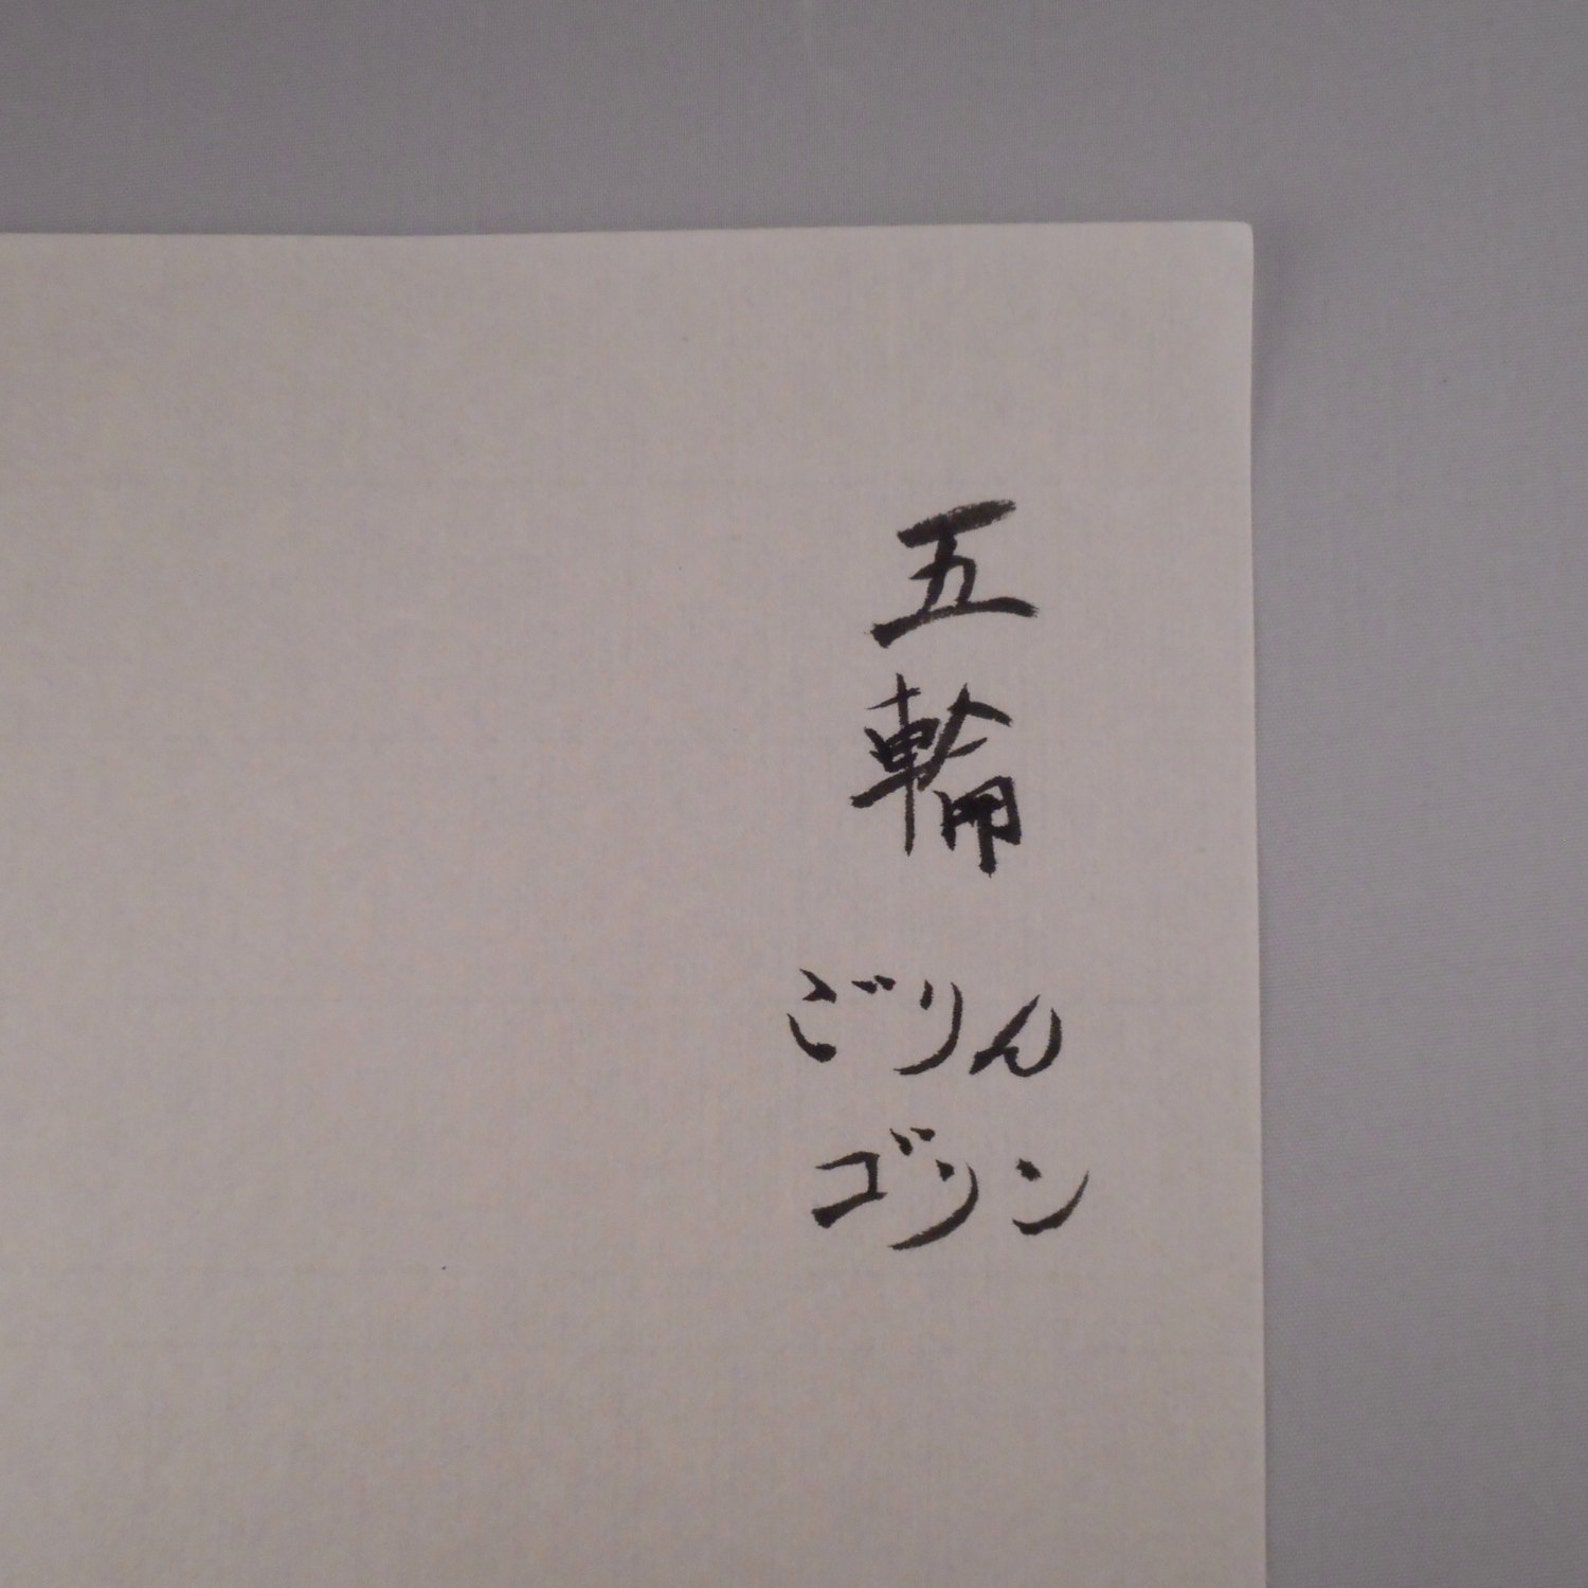 五輪
ごりん
ゴリン